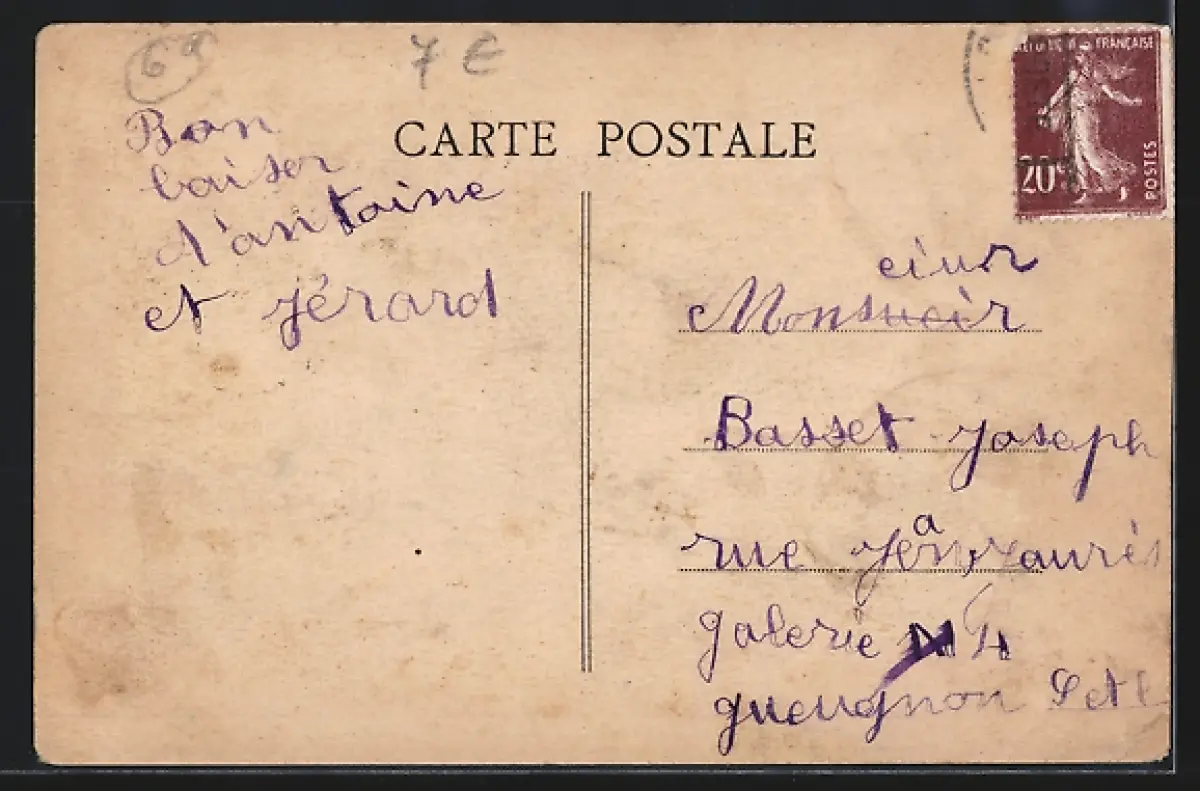 69
7 €
CARTE POSTALE
RÉPUBLIQUE FRANÇAISE
20c
POSTES
Bon
baiser
d'antoine
et Jérard
cieur
Monsucir
Basset Joseph
a
rue Jen Jaurès
galerie N 4
gueugnon S et L